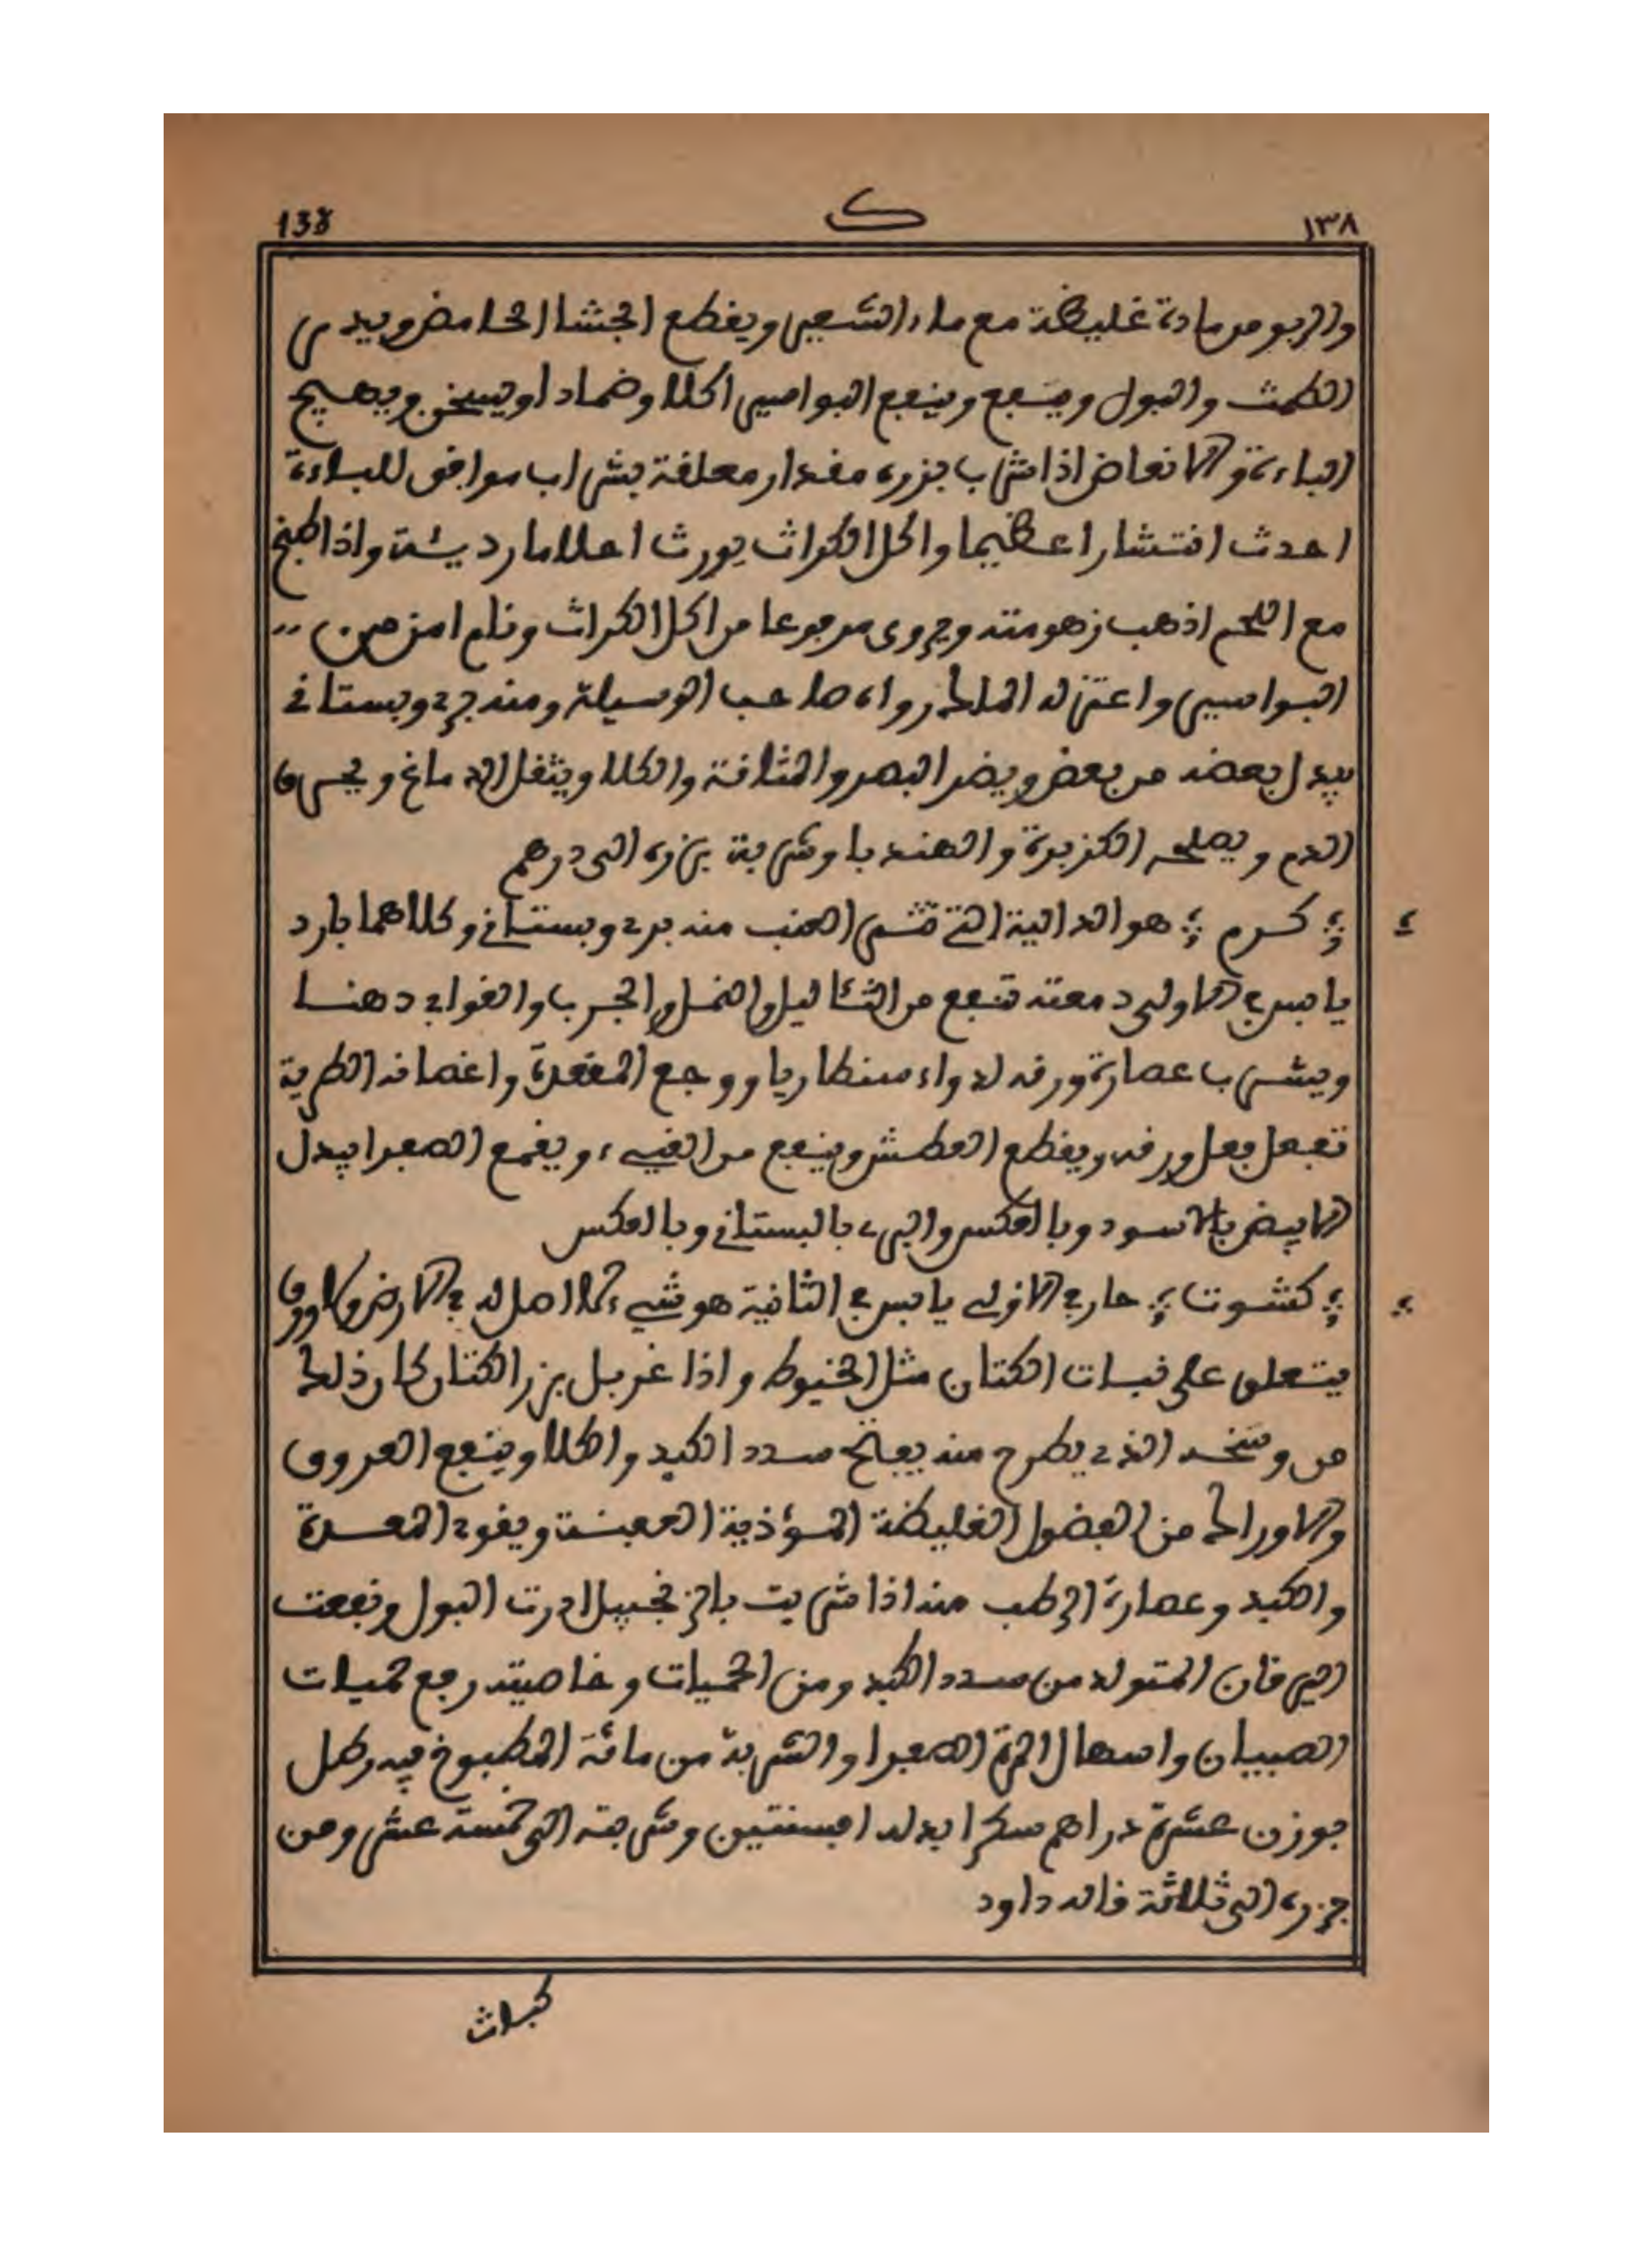 ١٣٨ ك 138
والربو من مادة غليظة مع ماء الشعير ويقطع الجشا الحامض ويدر
الطمث والبول وينفع البواسير اكلا وضمادا ويسخن ويهيج
الباءة والانعاض اذا شرب بزره مقدار معلقة بشراب موافق للباءة
احدث انتشارا عظيما واكل الكراث يورث احلاما رديئة واذا طبخ
مع اللحم اذهب زهومته وروى مرجوعا من اكل الكراث ونام امن من
البواسير واعتزله الملك رواه صاحب الوسيلة ومنه بري وبستاني
يبدل بعضه من بعض ويضر البصر والمثانة والكلا ويثقل الدماغ ويحرق
الدم ويصلحه الكزبرة والهندبا وشربة بزره الى درهم
؛ كرم ؛ هو الدالية التي تثمر العنب منه بري وبستاني وكلاهما بارد
يابس في الاولى دمعته تنفع من الثئاليل والنمل والجرب والقوابي دهنا
ويشرب عصارة ورقه لدواء سنطاريا ووجع المقعدة واغصانه الطرية
تفعل فعل ورقه ويقطع العطش وينفع من القيء ويقمع الصفرا يبدل
الابيض بالاسود وبالعكس والبري بالبستاني وبالعكس
؛ كشوت ؛ حار في الاولى يابس في الثانية هو شيء لا اصل له في الارض ولا ورق
يتعلق على نبات الكتان مثل الخيوط واذا غربل بزر الكتان كان ذلك
من وسخه الذي يطرح منه يفتح سدد الكبد والكلا وينفع العروق
والاوراك من الفضول الغليظة المؤذية العفنة ويقوي المعدة
والكبد وعصارة الرطب منه اذا شربت بالزنجبيل ادرت البول ونفعت
اليرقان المتولد من سدد الكبد ومن الحميات وخاصيته رفع حميات
الصبيان واسهال المرة الصفرا والشربة من مائة المطبوخ فيه رطل
بوزن عشرة دراهم سكرا بدله افسنتين وشربته الى خمسة عشر ومن
بزره الى ثلاثة قاله داود
كباث